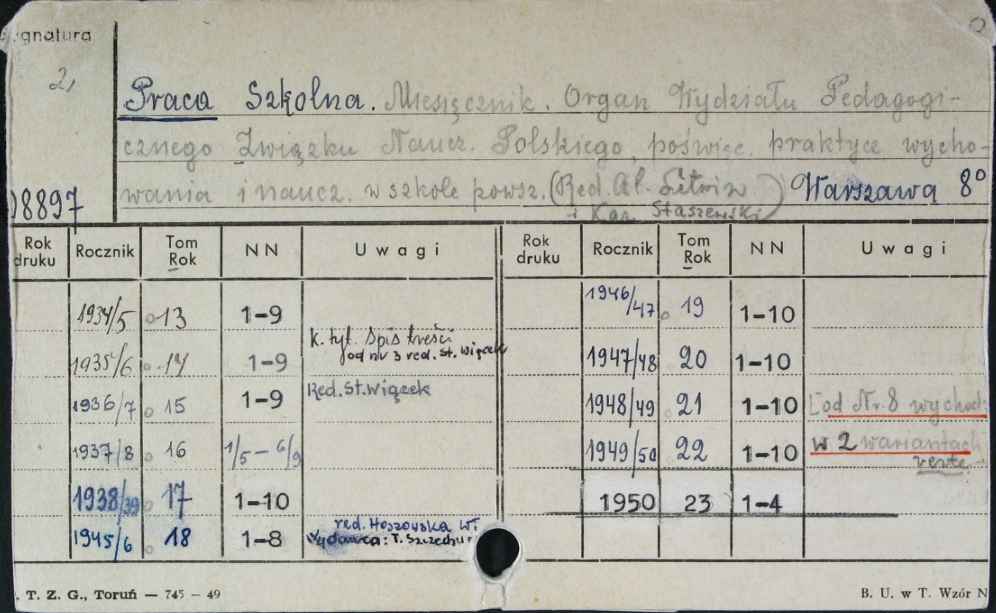 gnatura
2,
Praca Szkolna. Miesięcznik. Organ Wydziału Pedagogi-
cznego Związku Naucz. Polskiego, poświęc. praktyce wycho-
wania i naucz. w szkole powsz. (Red. Al. Litwin Warszawa 8°
i Kaz. Staszewski)
98897
Rok druku Rocznik Tom Rok NN Uwagi Rok druku Rocznik Tom Rok NN Uwagi
1934/5 13 1-9 1946/47 19 1-10
k. tyt. Spis treści
1935/6 14 1-9 od nr 3 red. St. Więcek 1947/48 20 1-10
1936/7 15 1-9 Red. St. Więcek 1948/49 21 1-10 [od Nr. 8 wychodz
1937/8 16 1/5-6/9 1949/50 22 1-10 w 2 wariantach
verte
1938/39 17 1-10 1950 23 1-4
red. Hoszowska Wł
1945/6 18 1-8 Wydawca: T. Szczechur
. T. Z. G., Toruń — 745 - 49 B. U. w T. Wzór N